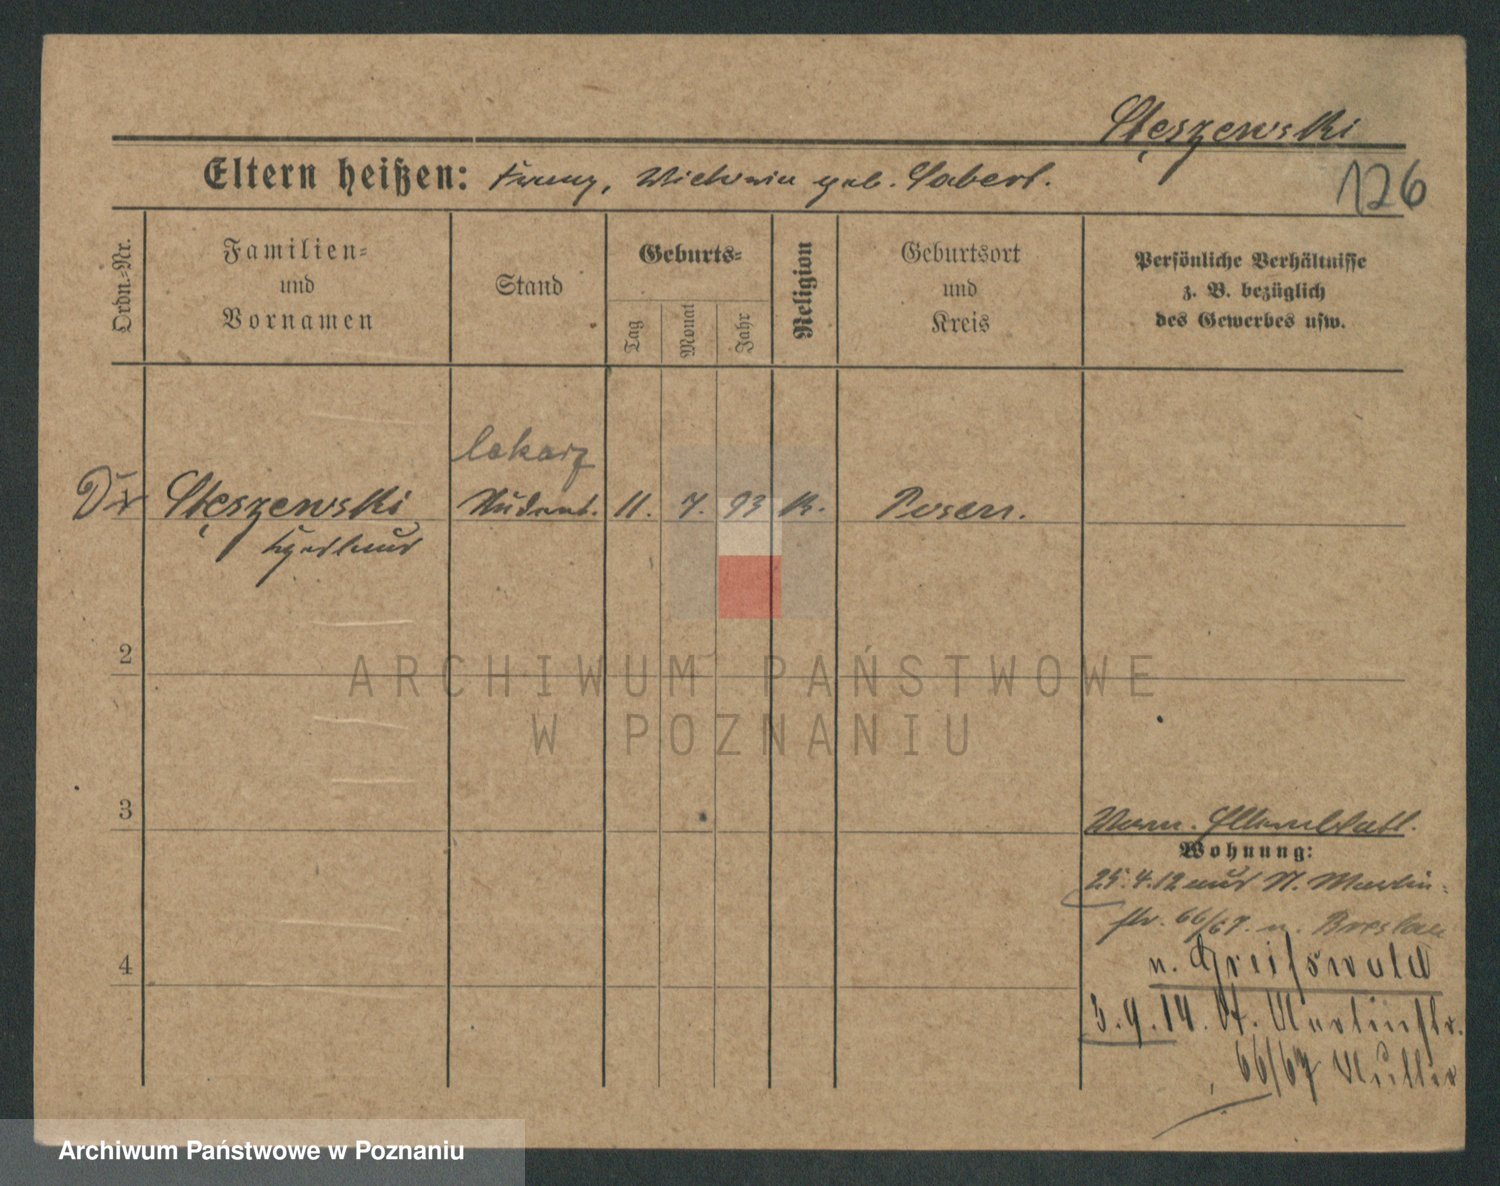 Stęszewski
Eltern heißen: Franz, Victoria geb. Sabert.
126
Ordn.-Nr.
Familien-
und
Vornamen
Stand
Geburts-
Tag
Monat
Jahr
Religion
Geburtsort
und
Kreis
Persönliche Verhältnisse
z. B. bezüglich
des Gewerbes usw.
lekarz
Dr Stęszewski Student. 11. 7. 93 K. Posen.
2
3
4
Wohnung:
25.4.12 auf St. Martin-
str. 66/67. n. Breslau
n. Greifswald
3.9.14. St. Martinstr.
66/67 Mutter
ARCHIWUM PAŃSTWOWE
W POZNANIU
Archiwum Państwowe w Poznaniu